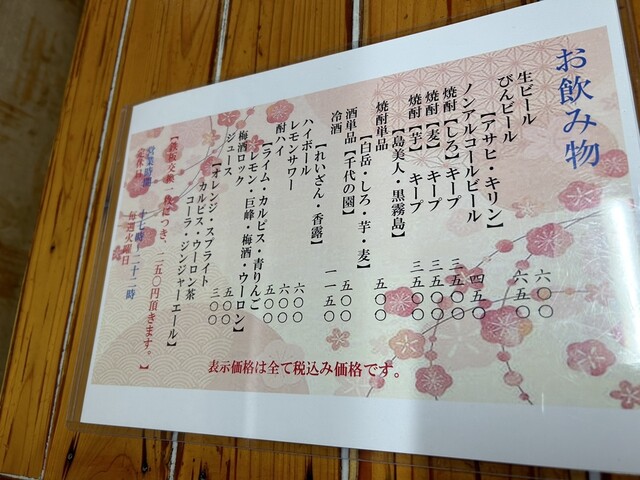 お飲み物
生ビール 六〇〇
びんビール 六五〇
【アサヒ・キリン】
ノンアルコールビール 四五〇
焼酎【しろ】キープ 三五〇〇
焼酎【麦】キープ 三五〇〇
焼酎【芋】キープ 三五〇〇
【島美人・黒霧島】
焼酎単品 五〇〇
【白岳・しろ・芋・麦】
酒単品【千代の園】 五〇〇
冷酒 一一五〇
【れいざん・香露】
ハイボール 六〇〇
レモンサワー 六〇〇
酎ハイ 六〇〇
【ライム・カルピス・青りんご
レモン・巨峰・梅酒・ウーロン】
梅酒ロック 五〇〇
ジュース 三〇〇
【オレンジ・スプライト
カルピス・ウーロン茶
コーラ・ジンジャーエール】
【鉄板交換一枚につき、二五〇円頂きます。】
営業時間 十七時~二十二時
定休日 毎週火曜日
表示価格は全て税込み価格です。